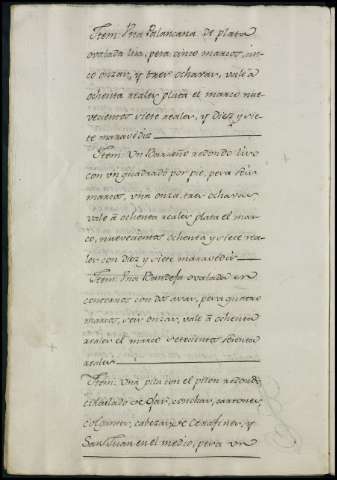 Item: Una Palancana de plata
ovalada lisa, pesa cinco marcos, cin-
co onzas, y tres ochavas, vale a
ochenta reales plata el marco nue-
vecientos siete reales, y diez y sie-
te maravedis
Item: Un Barreño redondo liso
con un quadrado por pie, pesa
marcos, una onza, tres ochavas
vale a ochenta reales plata el mar-
co, nuevecientos ochenta y siete rea-
les con diez y siete maravedis
Item: Una Bandeja ovalada en
contornos con dos asas, pesa quatro
marcos, seis onzas, vale a ochenta
reales el marco setecientos sesenta
reales
Item: Una pila con el pilon redondo,
cincelado de ojas, conchas, cartones,
colgantes, cabezas de Serafines, y
San Juan en el medio, pesa un